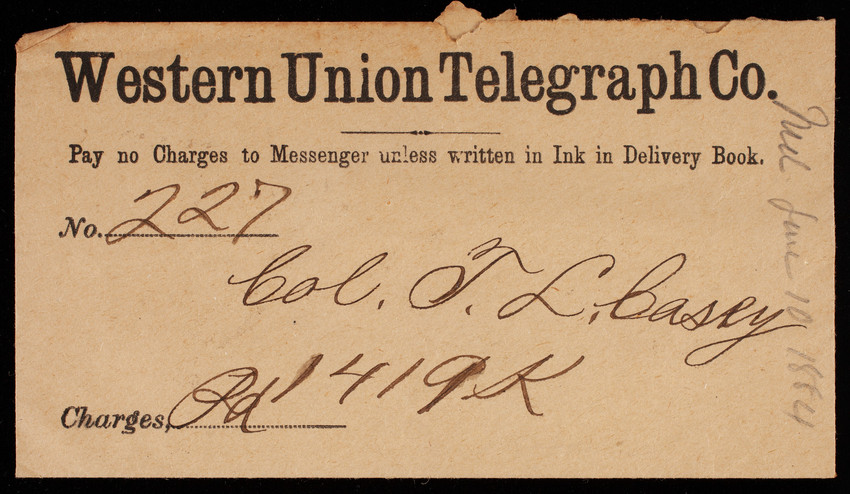 Western Union Telegraph Co.
Pay no Charges to Messenger unless written in Ink in Delivery Book.
No. 227
Col. T. L. Casey
1419 K
Charges, Pd
June 10 1884